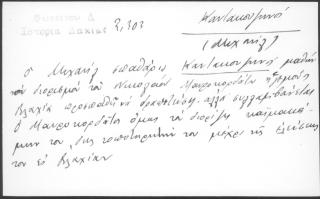 Φωτεινού Δ
Ιστορία Δακίας
2, 303
Καντακουζηνός
(Μιχαήλ)
Ο Μιχαήλ σπαθάρις Καντακουζηνός μαθών
τον διορισμόν του Νικολάου Μαυροκορδάτου ηγεμόνος
Βλαχία προσπαθεί να δραπετεύση αλλά συλλαμβάνεται
Ο Μαυροκορδάτος όμως τον διορίζει καϊμακά-
μην του, έως τοποτηρητήν του μέχρι της ελεύσεως
του εις Βλαχίαν